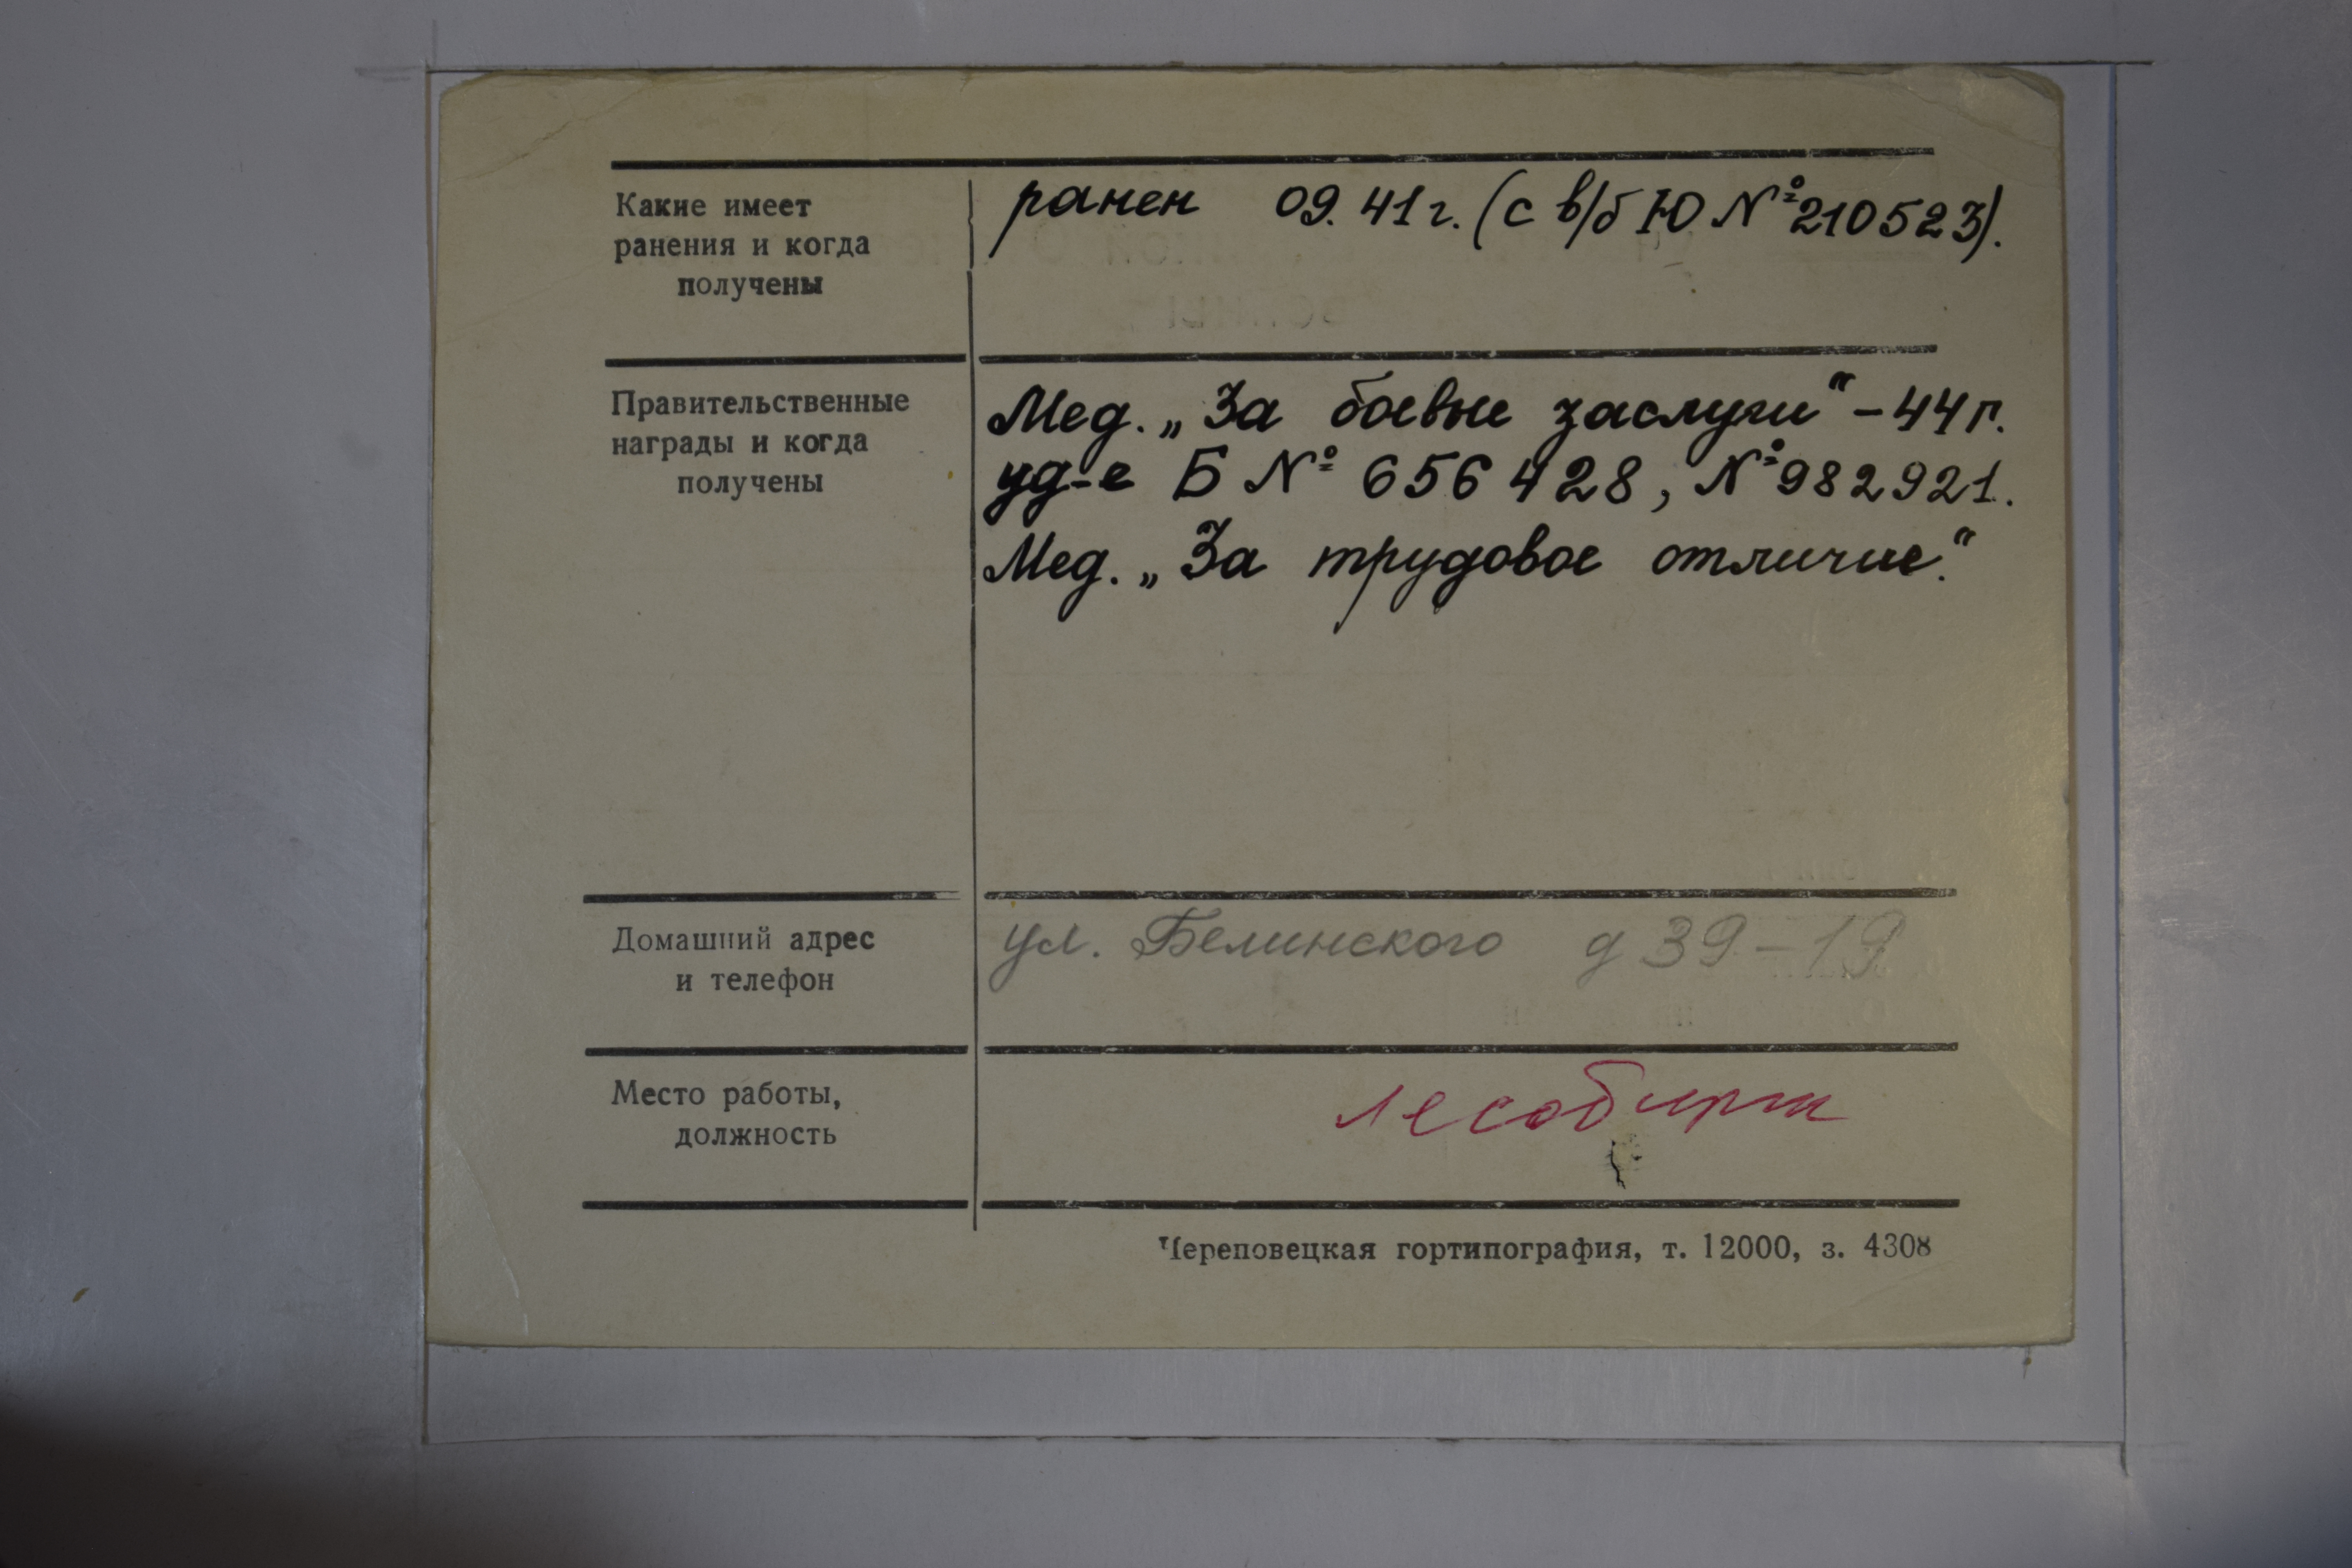 Какие имеет
ранения и когда
получены
ранен 09.41г. (с в/б Ю №210523).
Правительственные
награды и когда
получены
Мед. „За боевые заслуги“ – 44 г.
уд-е Б № 656428, № 982921.
Мед. „За трудовое отличие“.
Домашний адрес
и телефон
ул. Белинского д 39-19
Место работы,
должность
лесобиржи
Череповецкая гортипография, т. 12000, з. 4308